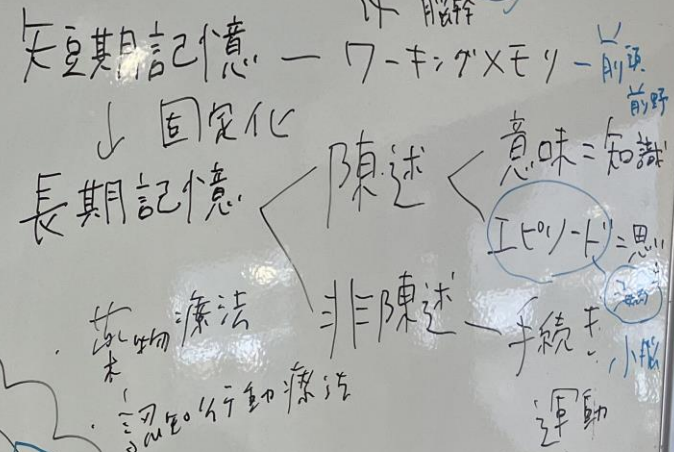 脳幹
短期記憶 — ワーキングメモリ — 前頭
前野
↓ 固定化
長期記憶 < 陳述 < 意味 = 知識
エピソード = 思い
海馬
非陳述 — 手続き 小脳
運動
・薬物療法
・認知行動療法